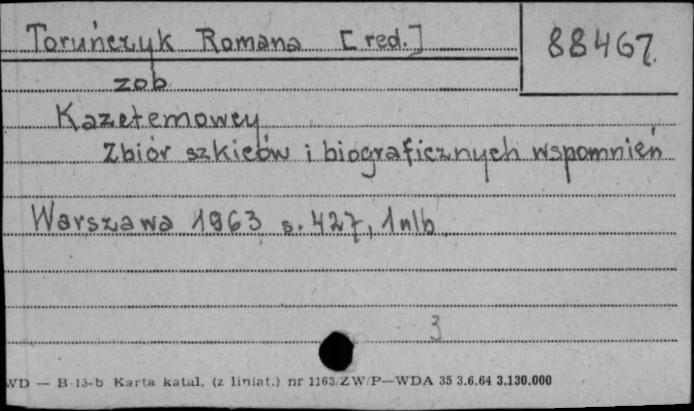 Toruńczyk Romana [red.]
88467.
zob
Kazetemowcy
Zbiór szkiców i biograficznych wspomnień
Warszawa 1963 s. 427, 1 nlb.
3
WD — B-13-b Karta katal. (z liniat.) nr 1163/ZW/P—WDA 35 3.6.64 3.130.000